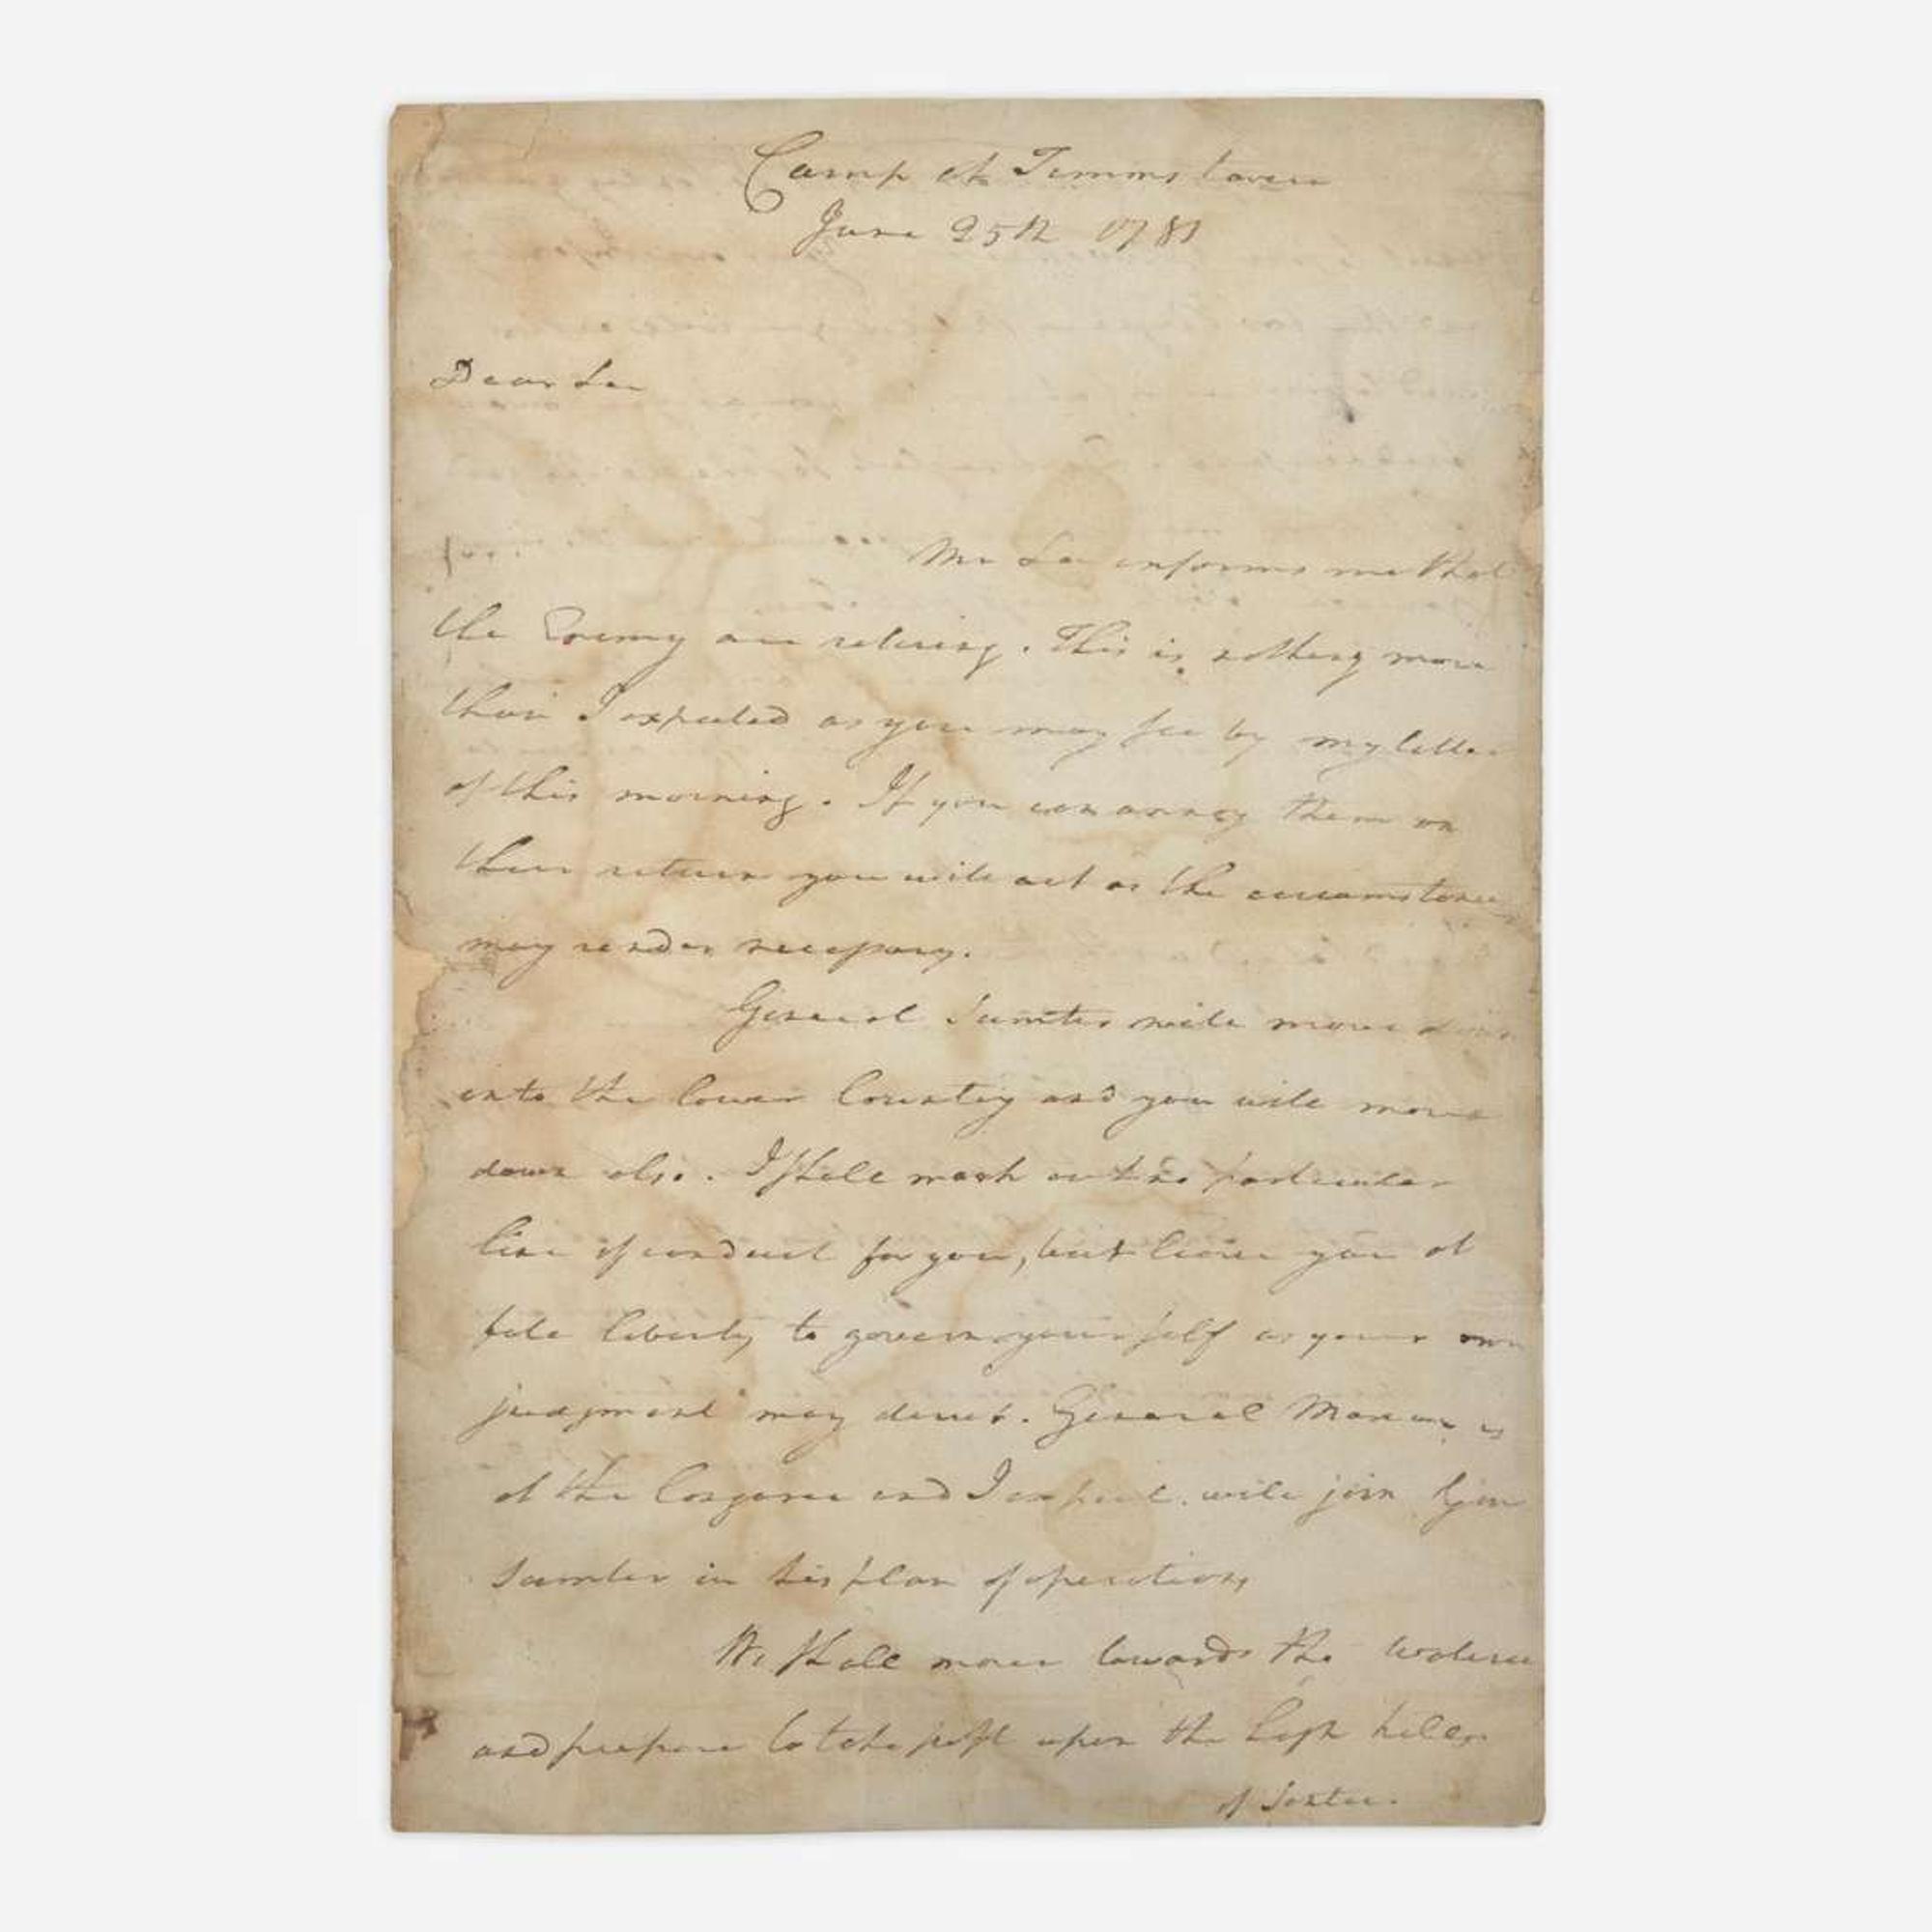 Camp at Timms tavern
June 25th 1781
Dear Sir
Mr Lee informs me that
the Enemy are retiring. This is nothing more
than I expected as you may see by my letter
of this morning. If you can annoy them on
their return you will act as the circumstances
may render necessary.
General Sumter will move down
into the lower Country and you will move
down also. I shall mark out no particular
line of conduct for you, but leave you at
full liberty to govern yourself as your own
judgment may direct. General Marion is
at the Congaree and I expect will join Gen
Sumter in his plan of operations
We shall move towards the Wateree
and prepare to take post upon the high hills
of Santee.